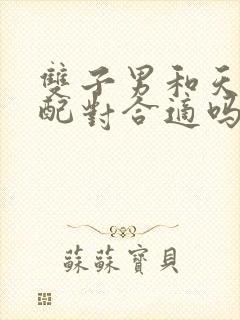 雙子男和天
配對合適嗎
蘇蘇寶貝